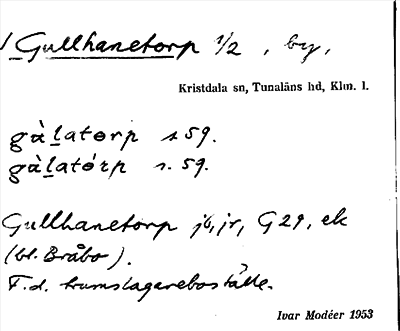 Gullhanetorp 1/2, by,
Kristdala sn, Tunaläns hd, Klm. l.
gὰl̠atɵrp s 59.
gὰl̠atɵ́rp s. 59.
Gullhanetorp jb, jr, G29, ek
(bl. Bråbo).
F.d. trumslagareboställe.
Ivar Modéer 1953